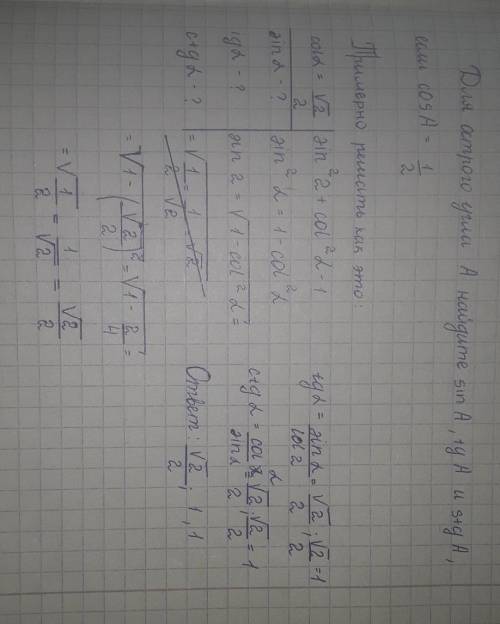 Для острого угла A найдите sin A, tg A и ctg A,
если cos A = 1/2
Примерно решать как это:
cos α = √2/2
sin α - ?
tg α - ?
ctg α - ?
sin² α + cos² α = 1
sin² α = 1 - cos² α
sin α = √(1 - cos² α) =
= √(1/2) = 1/√2 = √2
= √(1 - (√2/2)²) = √(1 - 2/4) =
= √(1/2) = 1/√2 = √2/2
tg α = sin α / cos α = √2/2 : √2/2 = 1
ctg α = cos α / sin α = √2/2 : √2/2 = 1
Ответ: √2/2; 1, 1